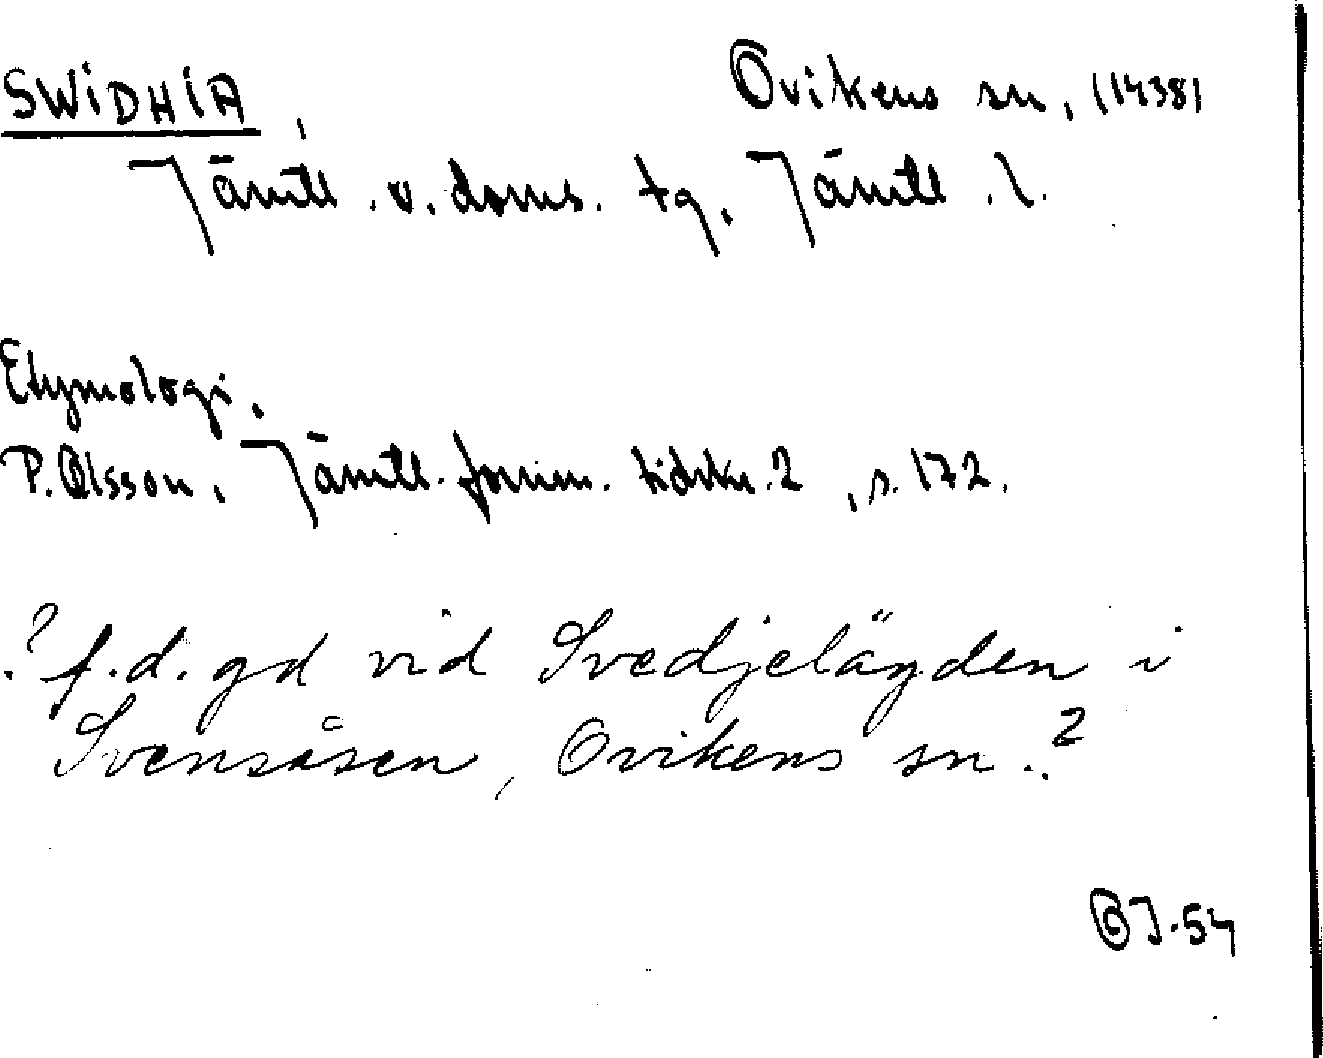 SWIDHIA, Ovikens sn, (1438)
Jämtl. v. doms. tg, Jämtl. l.
Etymologi.
P. Olsson, Jämtl. fornm. tidskr. 2, s. 172.
? f.d. gd vid Svedjelägden i
Svensåsen, Ovikens sn.?
BJ.54